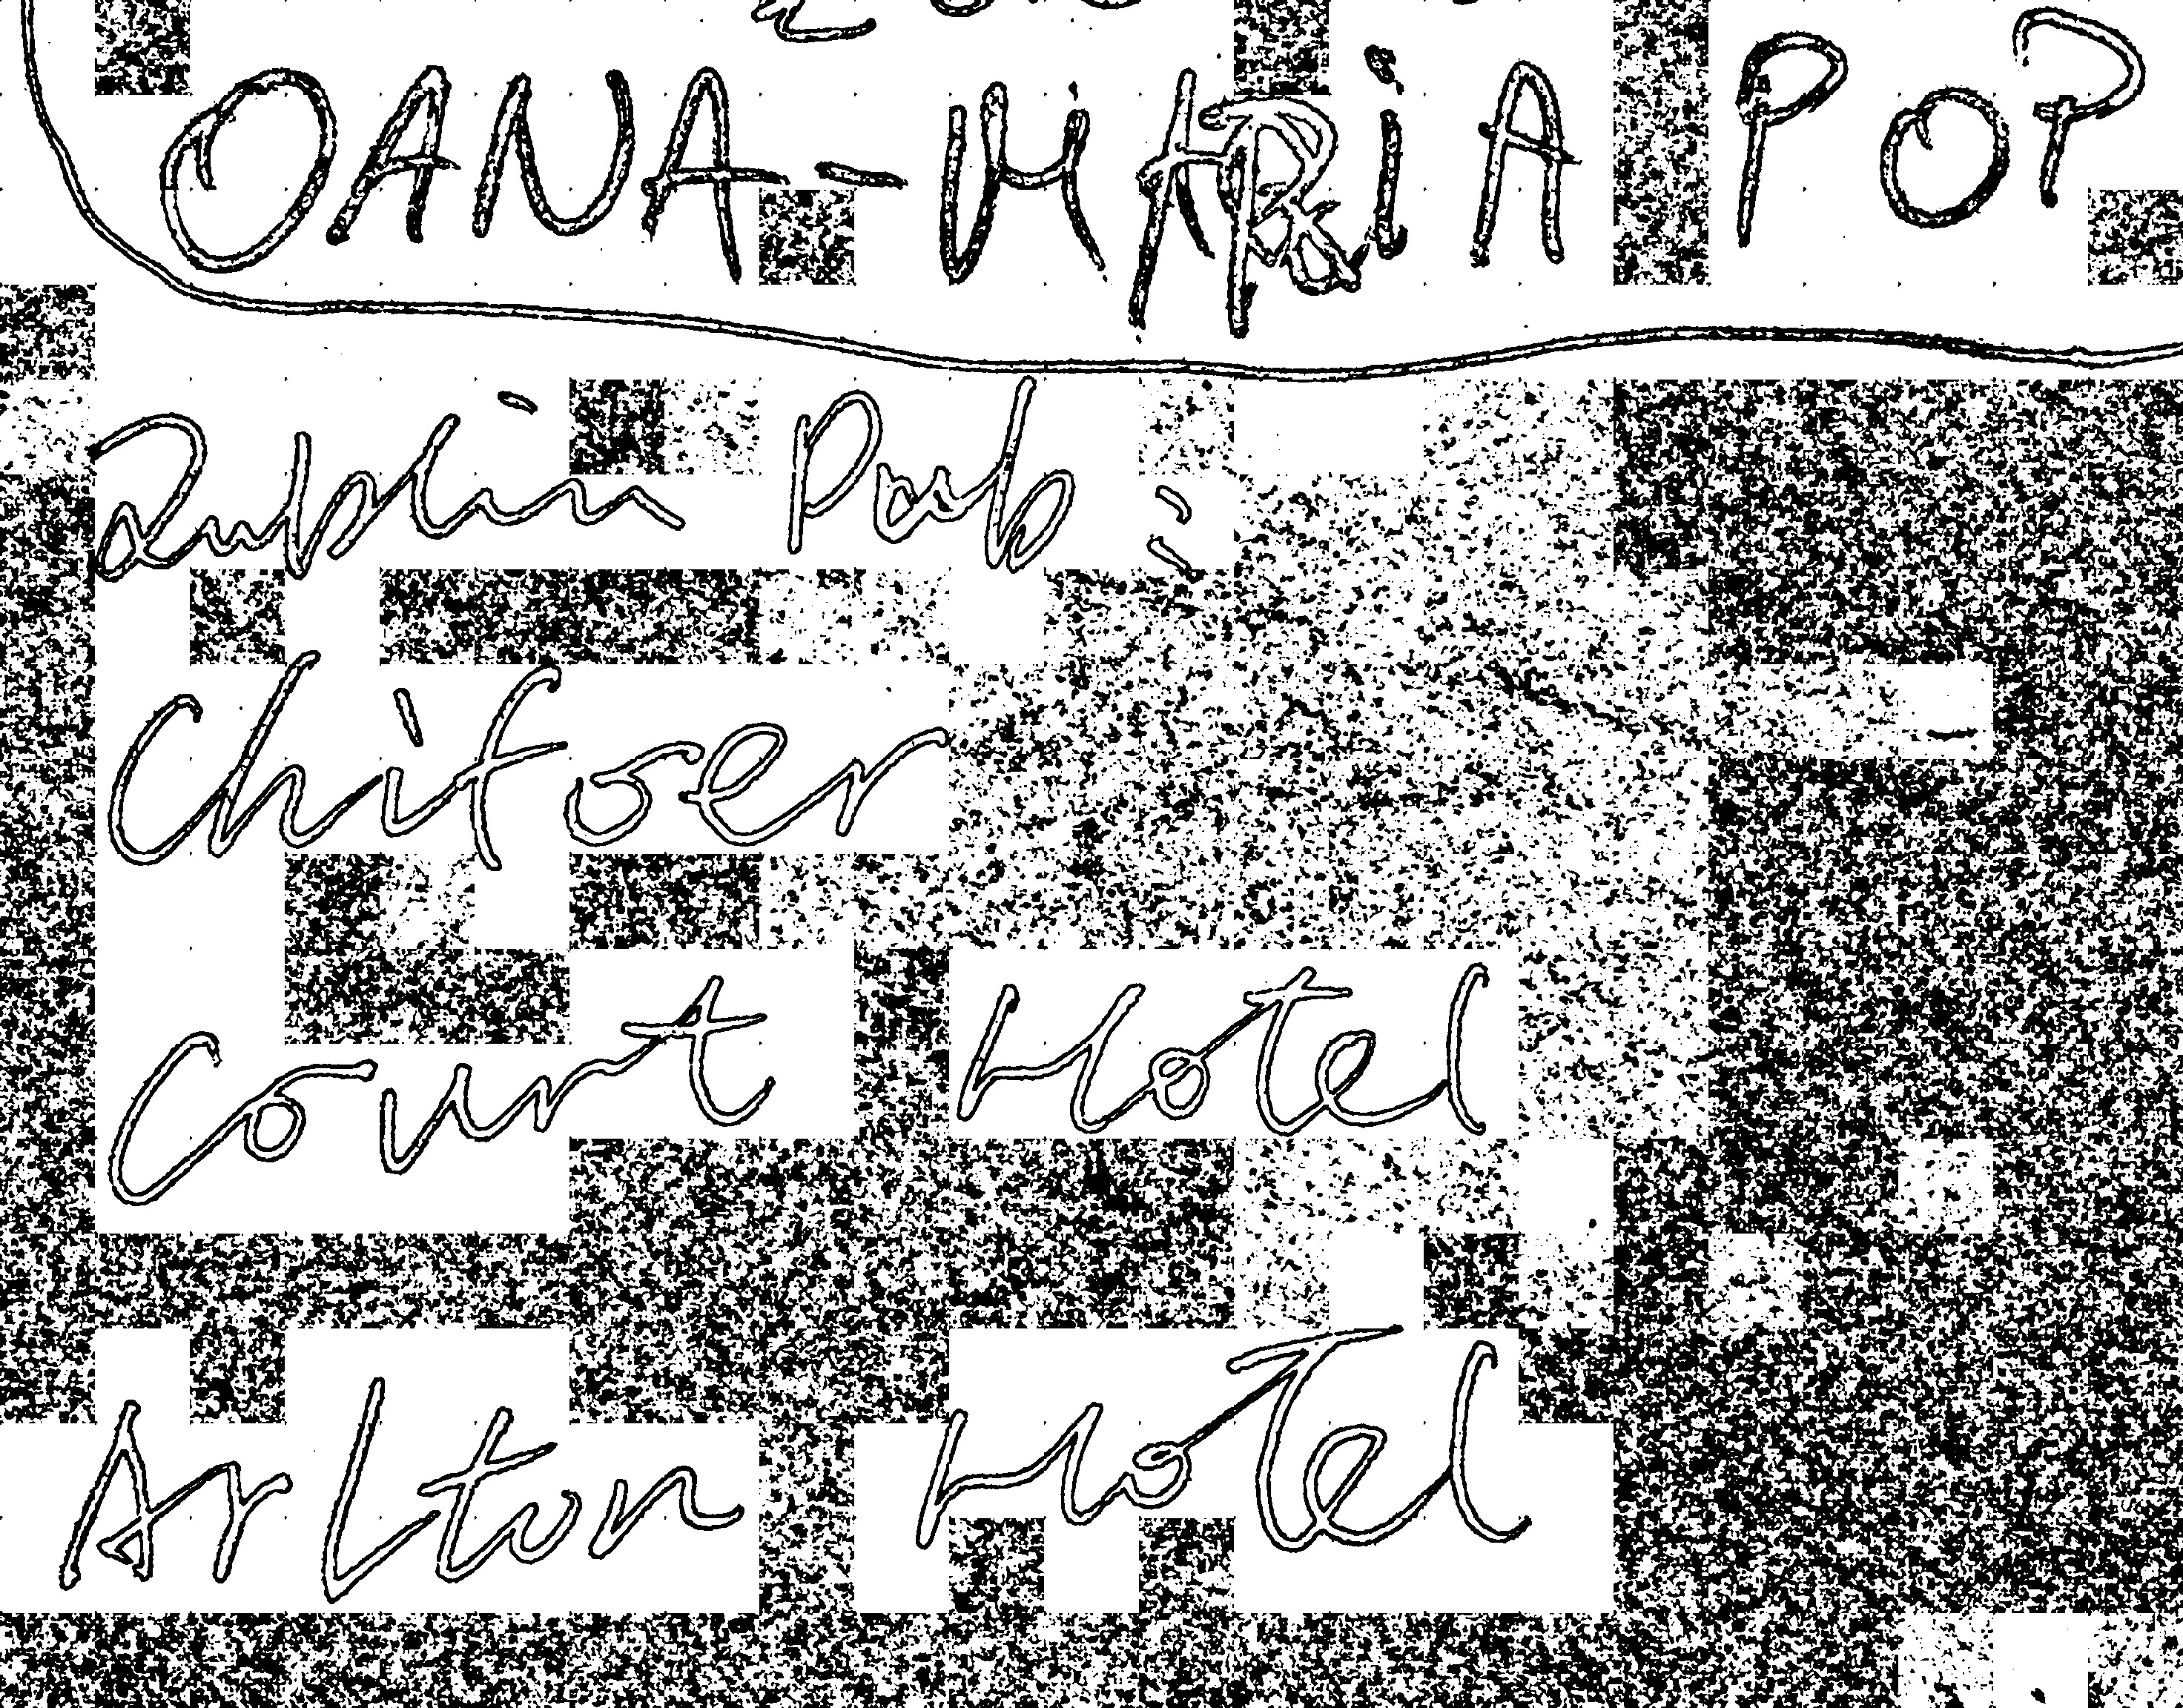 OANA-MARiA POP
Dublin Pub :
Chifoer
Court Hotel
Arlton Hotel